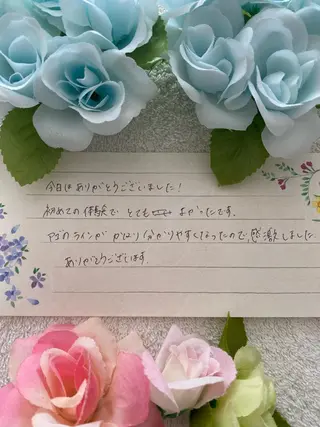 今日はありがとうございました!
初めての体験で とても よかったです。
アゴのラインが かなり分かりやすくなったので、感激しました
ありがとうございます.